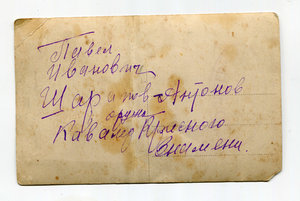 Павел
Иванович
Шарапов-Антонов
ордена
Кавалер Красного
Знамени